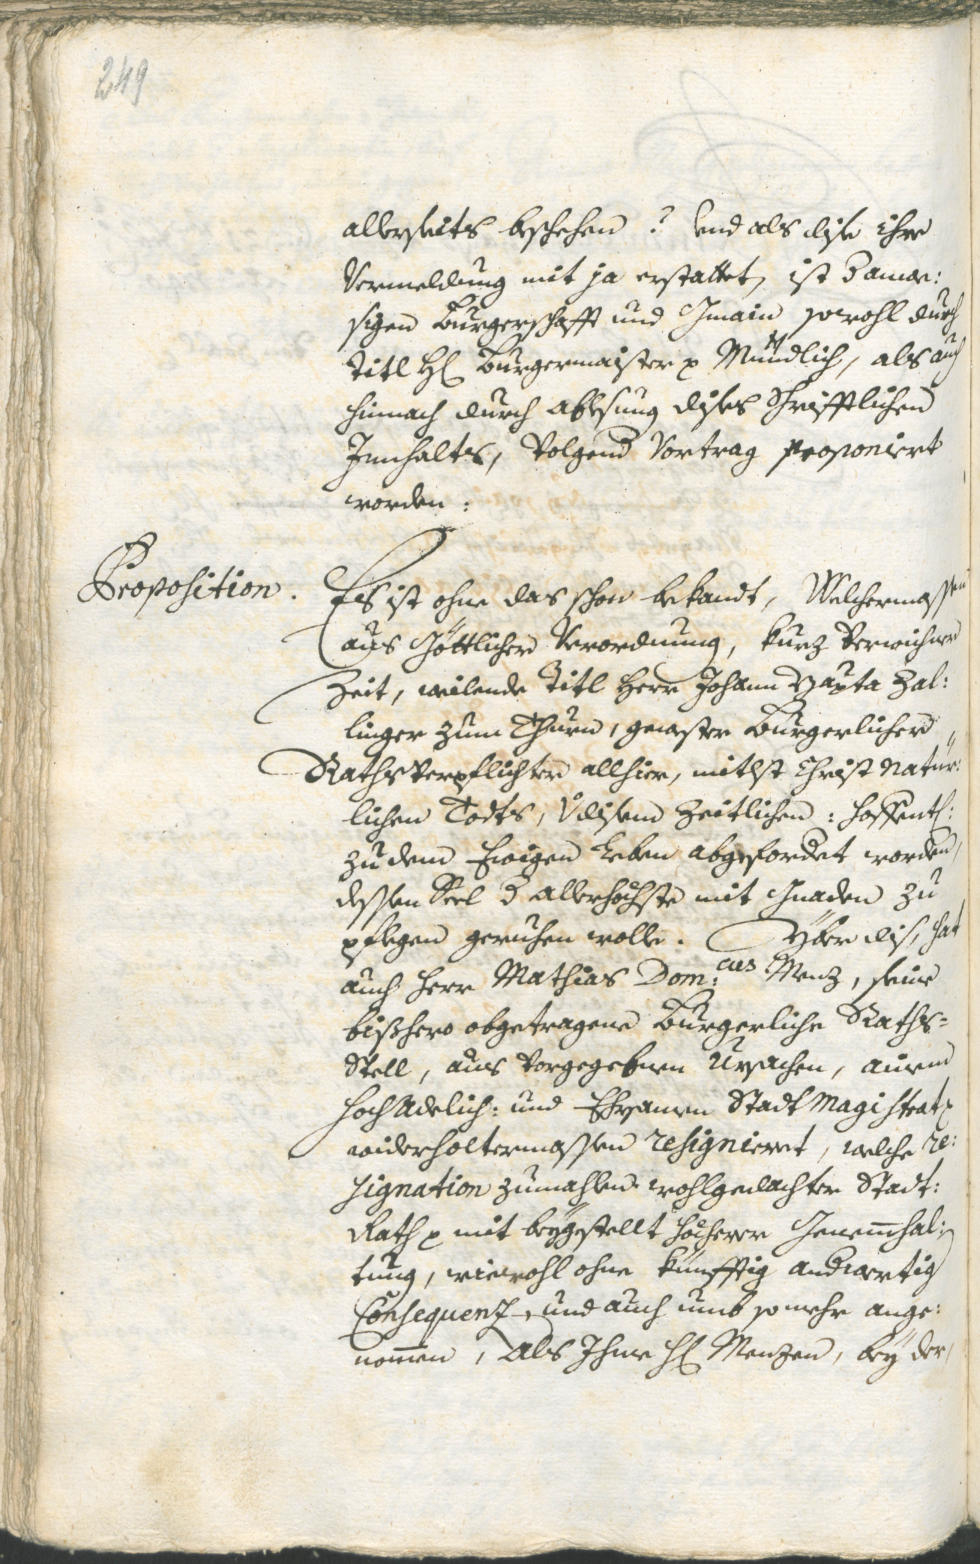 249
allerseits beschehen? Und als dise ihre
Vermeldung mit ja erstattet, ist d anwe:
sigen Burgerschafft und Gmain sowohl durch
Titl H Burgermaister p Mündlich, als auch
hinnach durch ablesung dises Schrifftlichen
Innhalts, Volgend Vortrag proponiert
worden:
Proposition.
Es ist ohne das schon bekandt, Welchermassen
aus Göttlicher Verordnung, kurz verwichner
Zeit, weilende Titl Herr Johann Bapta Zal:
linger zum Thurn, gewester Burgerlicher
Rathsverpflichter allhier, mitlst Christ natür:
lichen Todts, disem Zeitlichen: hoffentl:
zu dem Ewigen Leben abgefordet worden,
dessen Seel d allerhöchste mit Gnaden zu
pflegen geruhen wolle. Yber dis, hat
auch Herr Mathias Dom:cus Menz, seine
bißhero obgetragene Burgerliche Raths=
Stell, aus vorgegebnen Ursachen, ainem
Hoch Adelich: und Ehrsamen Stadt Magistrat p
widerholtermassen resigniert, welche re:
signation zumahlen wohlgedachter Stadt:
Rath p mit beygestellt höcherer Genemhal:
tung, wiewohl ohne künfftig andwertig
Consequenz, und auch umb so mehr ange:
nommen, Als Ihme H Menzen, bey der